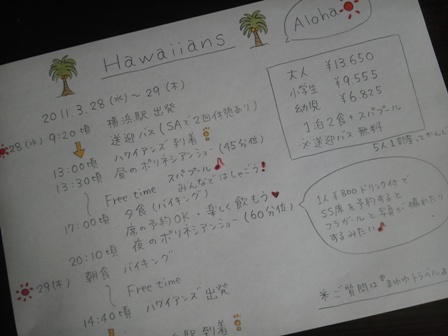 Hawaiians
Aloha
2011.3.28(火)～29(木)
28(火) 9:20頃 横浜駅 出発
送迎バス(SAで2回休憩あり)
13:00頃 ハワイアンズ 到着
13:30頃 昼のポリネシアンショー(45分位)
スパプール
Free time みんなではしゃごう!
17:00頃 夕食(バイキング)
席の予約OK・楽しく飲もう
20:10頃 夜のポリネシアンショー(60分位)
29(木) 朝食 バイキング
Free time
14:40頃 ハワイアンズ 出発
駅到着
大人 ¥13,650
小学生 ¥9,555
幼児 ¥6,825
1泊2食+スパプール
※送迎バス 無料
5人1部屋
1人¥800ドリンク付で
SS席を予約すると
フラガールと写真が撮れたり
するみたい
※ご質問は